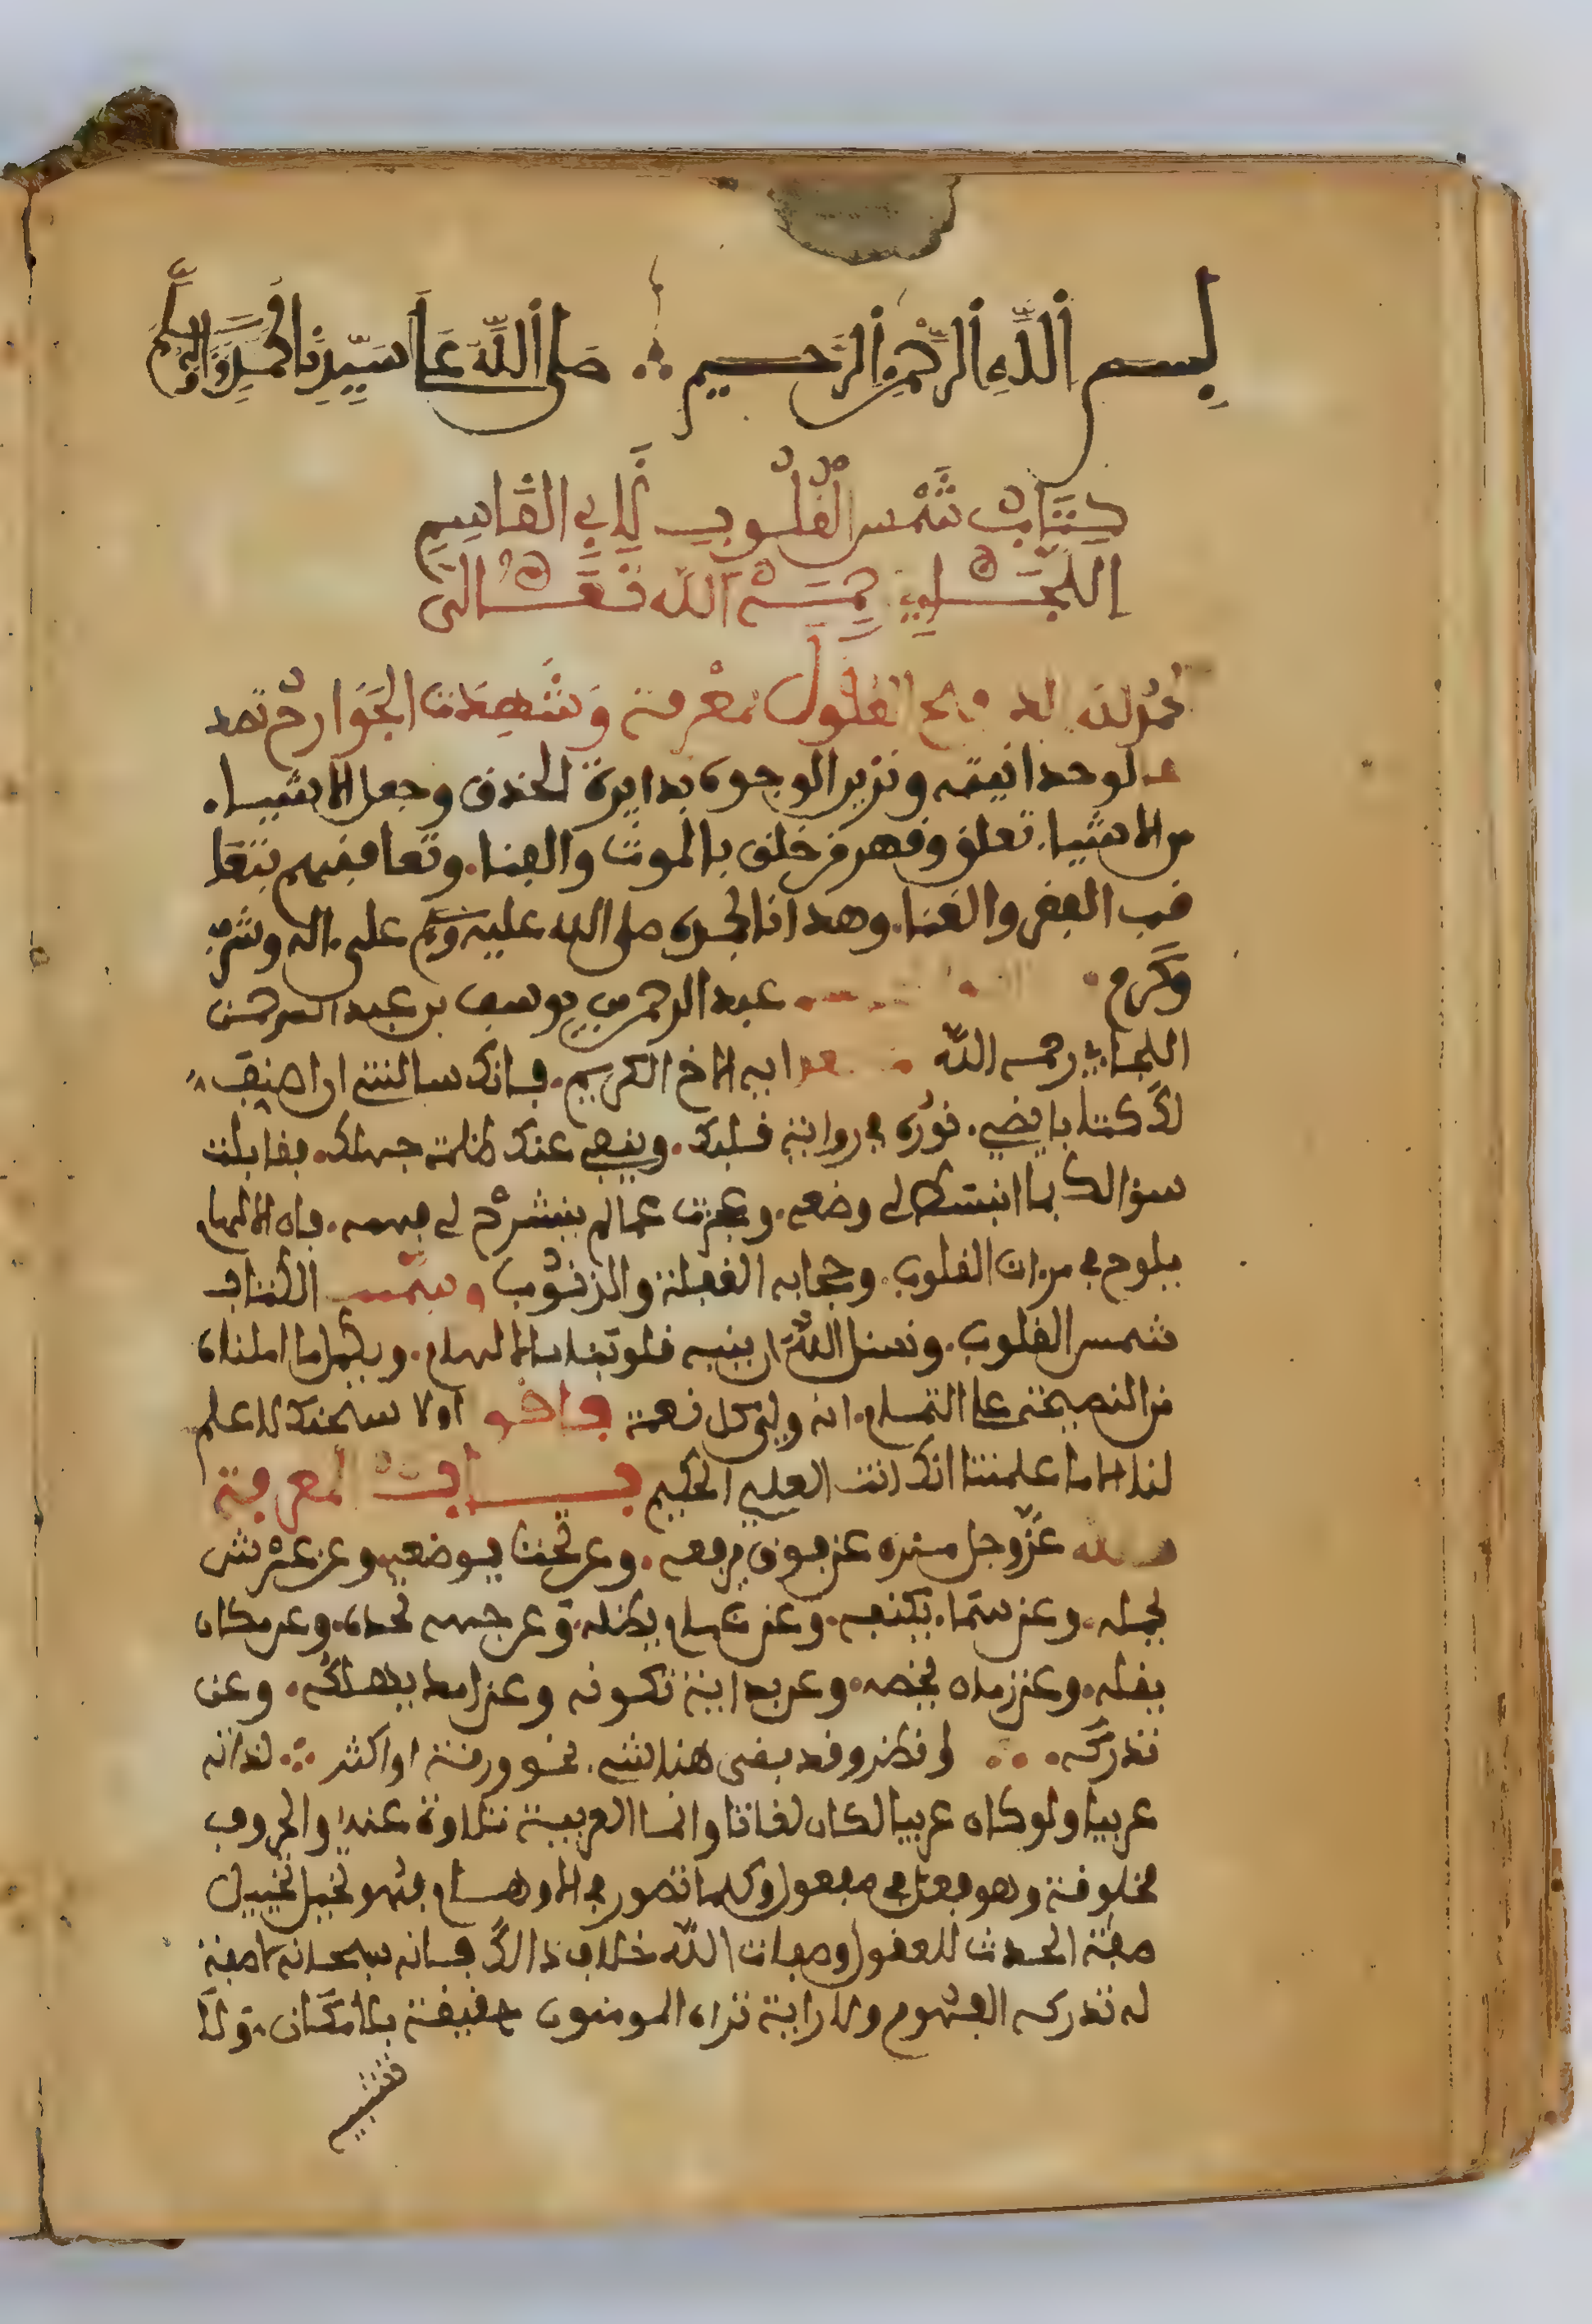 بسم الله الرحمن الرحيم ∴ صلى الله على سيدنا محمد واله
كتاب شمس القلوب لابي القاسم
اللجائي رحمه الله تعالى
الحمد لله فتح القلوب بمعرفته وشهدت الجوارح
لوحدانيته وتزير الوجوه بدايرة الحذق وجعل الاشياء
من الاشيا تعلق وقهر من خلق بالموت والفنا. وتعا فيهم
الفقر والغنا. وهدانا بمحمد صلى الله عليه وسلم على اله وشرف
وكرم عبد الرحمن بن يوسف بن عبد الرحمن
اللجائي رحمه الله ايه الاخ الكريم. فانك سالتني ان اصنف
لك كتابا يضيء نوره في قلبك. وينفي عنك ظلمة جهلك. فقابلت
سؤالك بما انبسط لي وضعه. وعجزت عما لم ينشرح لي فهمه. فان الالهام
يلوح في مرءات القلوب. وحجابه الغفلة والذنوب وسميت الكتاب
شمس القلوب. ونسئل الله ان ينبه قلوبنا بالالهام. ويكمل ما املناه
من النصيحة على التمام. انه ولي كل نعمة فاقول اولا سبحنك لا علم
لنا الا ما علمتنا انك انت العليم الحكيم باب المعرفة
عز وجل منزه عن فوق يرفعه. وعن تحت يوضعه وعن عرش
يحمله. وعن سما يكنفه. وعن غمام يظله. وعن جهه تحده. وعن مكان
يقله. وعن زمان يخصه. وعن بداية تكونه وعن امد يهلكه. وعن
تدركه. نحو ورقة او اكثر ∴ لانه
عربيا ولو كان عربيا لكان لغاتا وانما العربية تلاوة عنه والحروف
مخلوقة وهو فعل في مفعول وكلما تصور في الاوهام فهو تخييل
صفة المحدث للعقول وصفات الله خلاف ذالك فانه سبحانه لا صفة
له تدركه الفهوم ولا راية تراه المومنون حقيقة بلا مكان. ولا
تشبيه